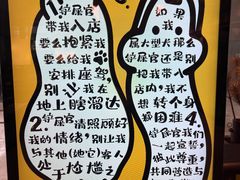 1.铲屎官
带我入店
要么抱紧我
要么给我
安排座驾
别让我在
地上瞎溜达
2.铲屎官
请照顾好
我的情绪,别让我
与其他(她它)客人
处于尴尬之
如果
我
属大型犬那么
容许我带入
店内,我不
想转个身
都困难
4.
铲屎官我们
一起宣誓
彼此尊重
共同营造